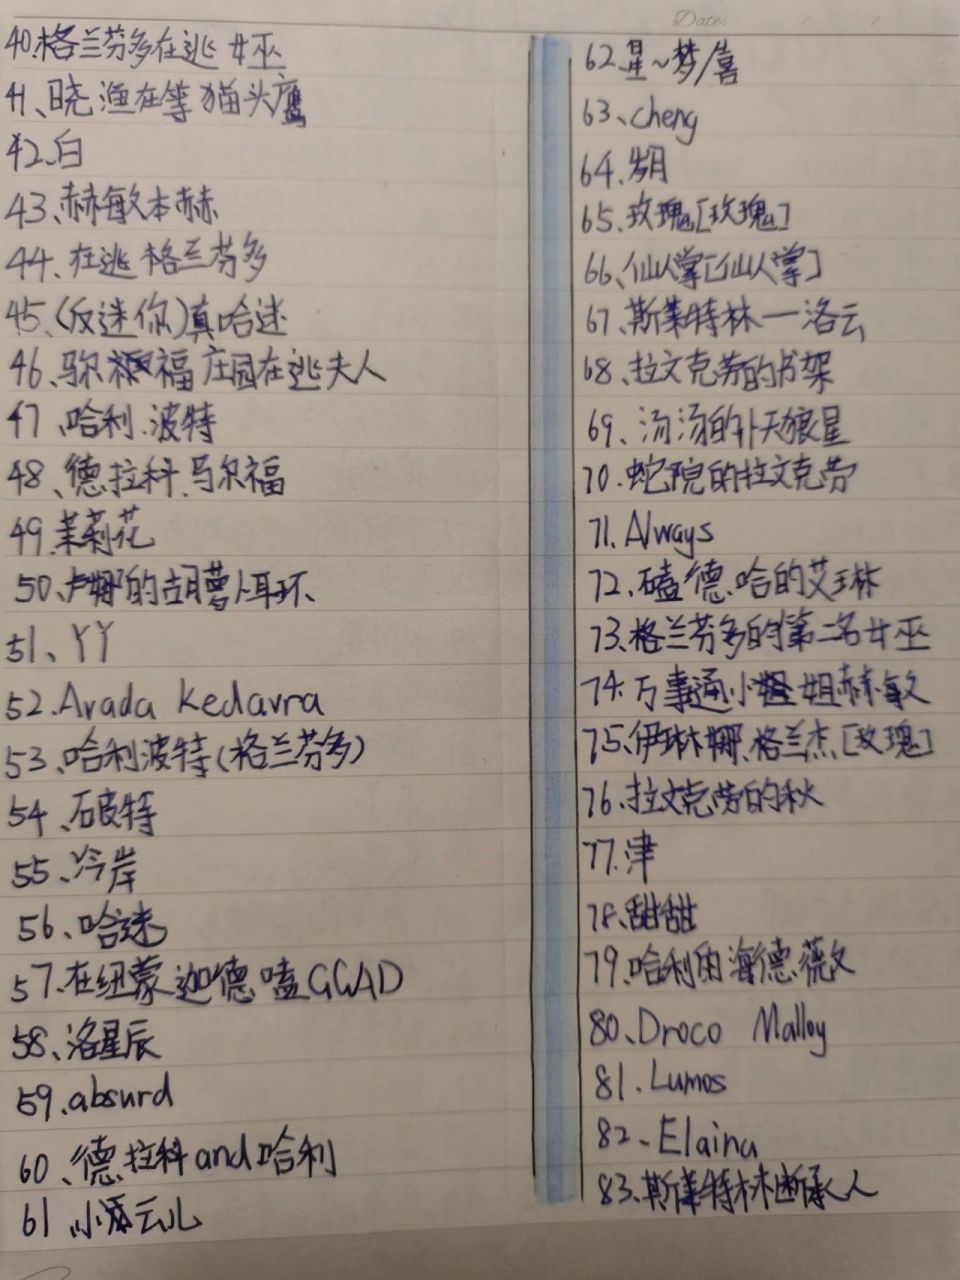 Date: / /
40.格兰芬多在逃女巫
41、晓渔在等猫头鹰
42、白
43、赫敏本赫
44、在逃格兰芬多
45、(反迷你)真哈迷
46、马尔福庄园在逃夫人
47、哈利.波特
48、德拉科.马尔福
49.茉莉花
50、卢娜的胡萝卜耳环
51、YY
52.Avada Kedavra
53、哈利波特(格兰芬多)
54、破特
55、冷岸
56、哈迷
57.在纽蒙迦德嗑GGAD
58、洛星辰
59.absurd
60、德拉科and哈利
61、小添云儿
62.星~梦/喜
63、cheng
64.岁月
65.玫瑰[玫瑰]
66、仙人掌[仙人掌]
67、斯莱特林一洛云
68、拉文克劳的书架
69、汤汤的小天狼星
70.蛇院的拉文克劳
71.Always
72.磕德哈的艾琳
73.格兰芬多的第二名女巫
74.万事通小姐赫敏
75.伊琳娜.格兰杰[玫瑰]
76.拉文克劳的秋
77.津
78.甜甜
79.哈利的海德薇
80、Droco Malloy
81.Lumos
82、Elaina
83.斯莱特林断承人